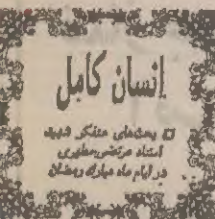 انسان کامل
بحث‌های متفکر شهید
استاد مرتضی مطهری
در ایام ماه مبارک رمضان